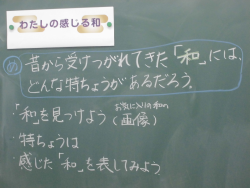 わたしの感じる和
め 昔から受けつがれてきた「和」には、
どんな特ちょうがあるだろう。
お気に入りの和の
・「和を見つけよう(画像)
・特ちょうは
・感じた「和」を表してみよう